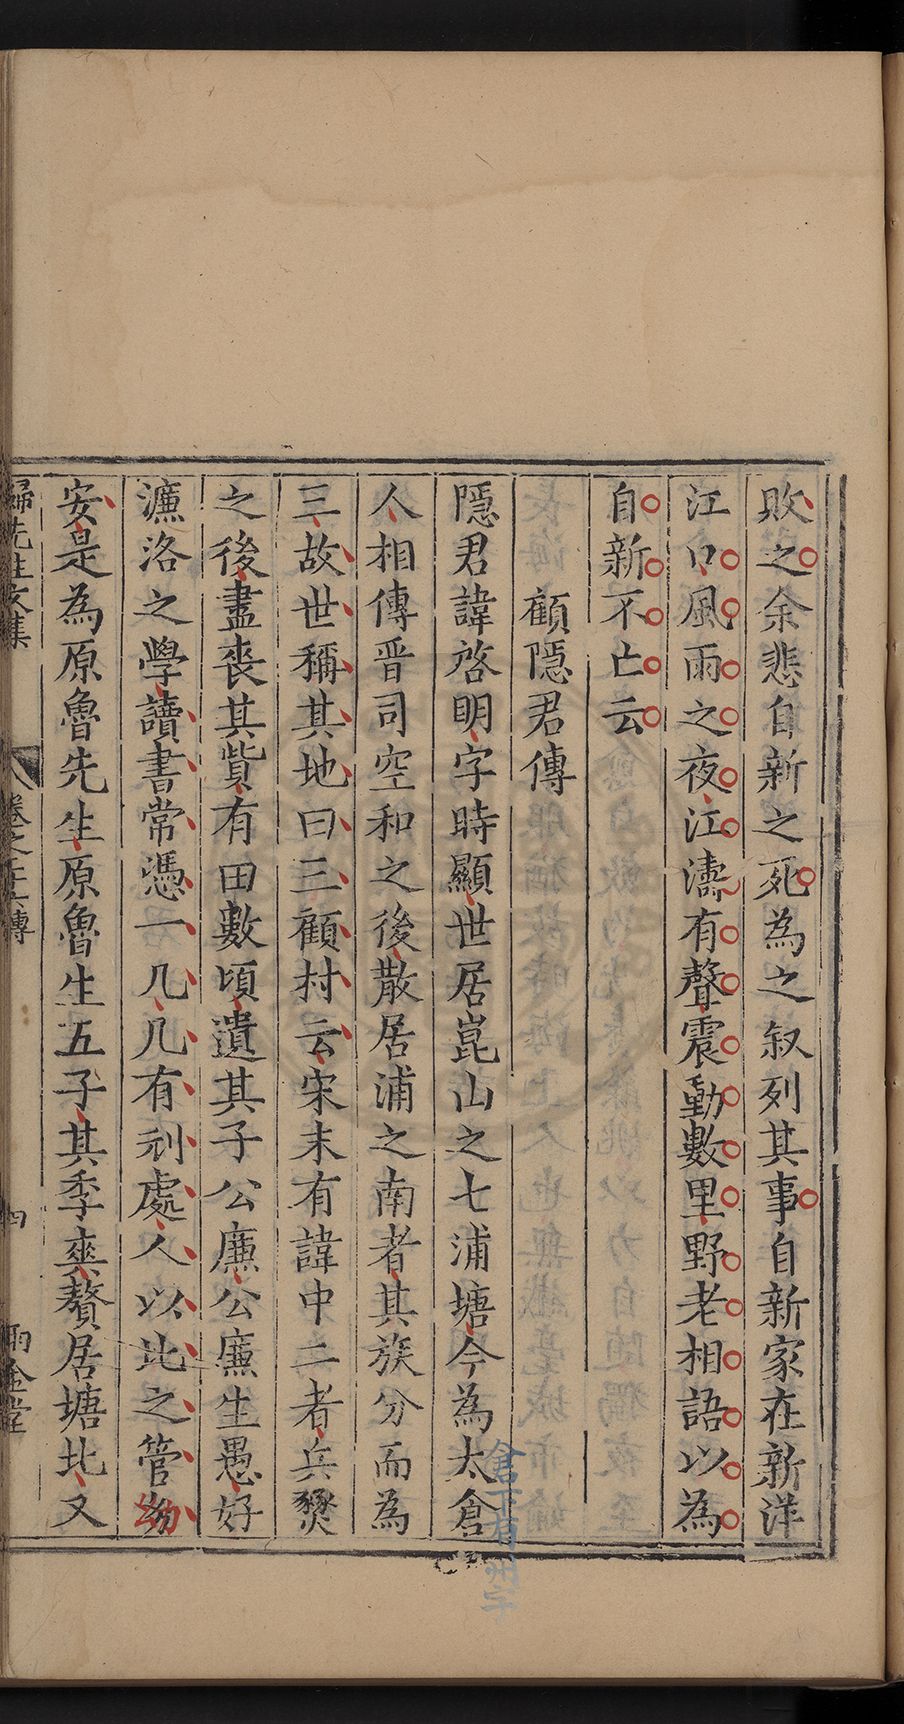 敗之余悲自新之死為之叙列其事自新家在新洋
江口風雨之夜江濤有聲震動數里野老相語以為
自新不亡云
顧隱君傳
隱君諱啓明字時顯世居崑山之七浦塘今為太倉
人相傳晋司空和之後散居浦之南者其族分而為
三故世稱其地曰三顧村云宋末有諱中二者兵燹
之後盡喪其貲有田數頃遺其子公廉公廉生愚好
濂洛之學讀書常憑一几几有刓處人以比之管幼
安是為原魯先生原魯生五子其季奭贅居塘北又
歸先生文集
倉下有州字